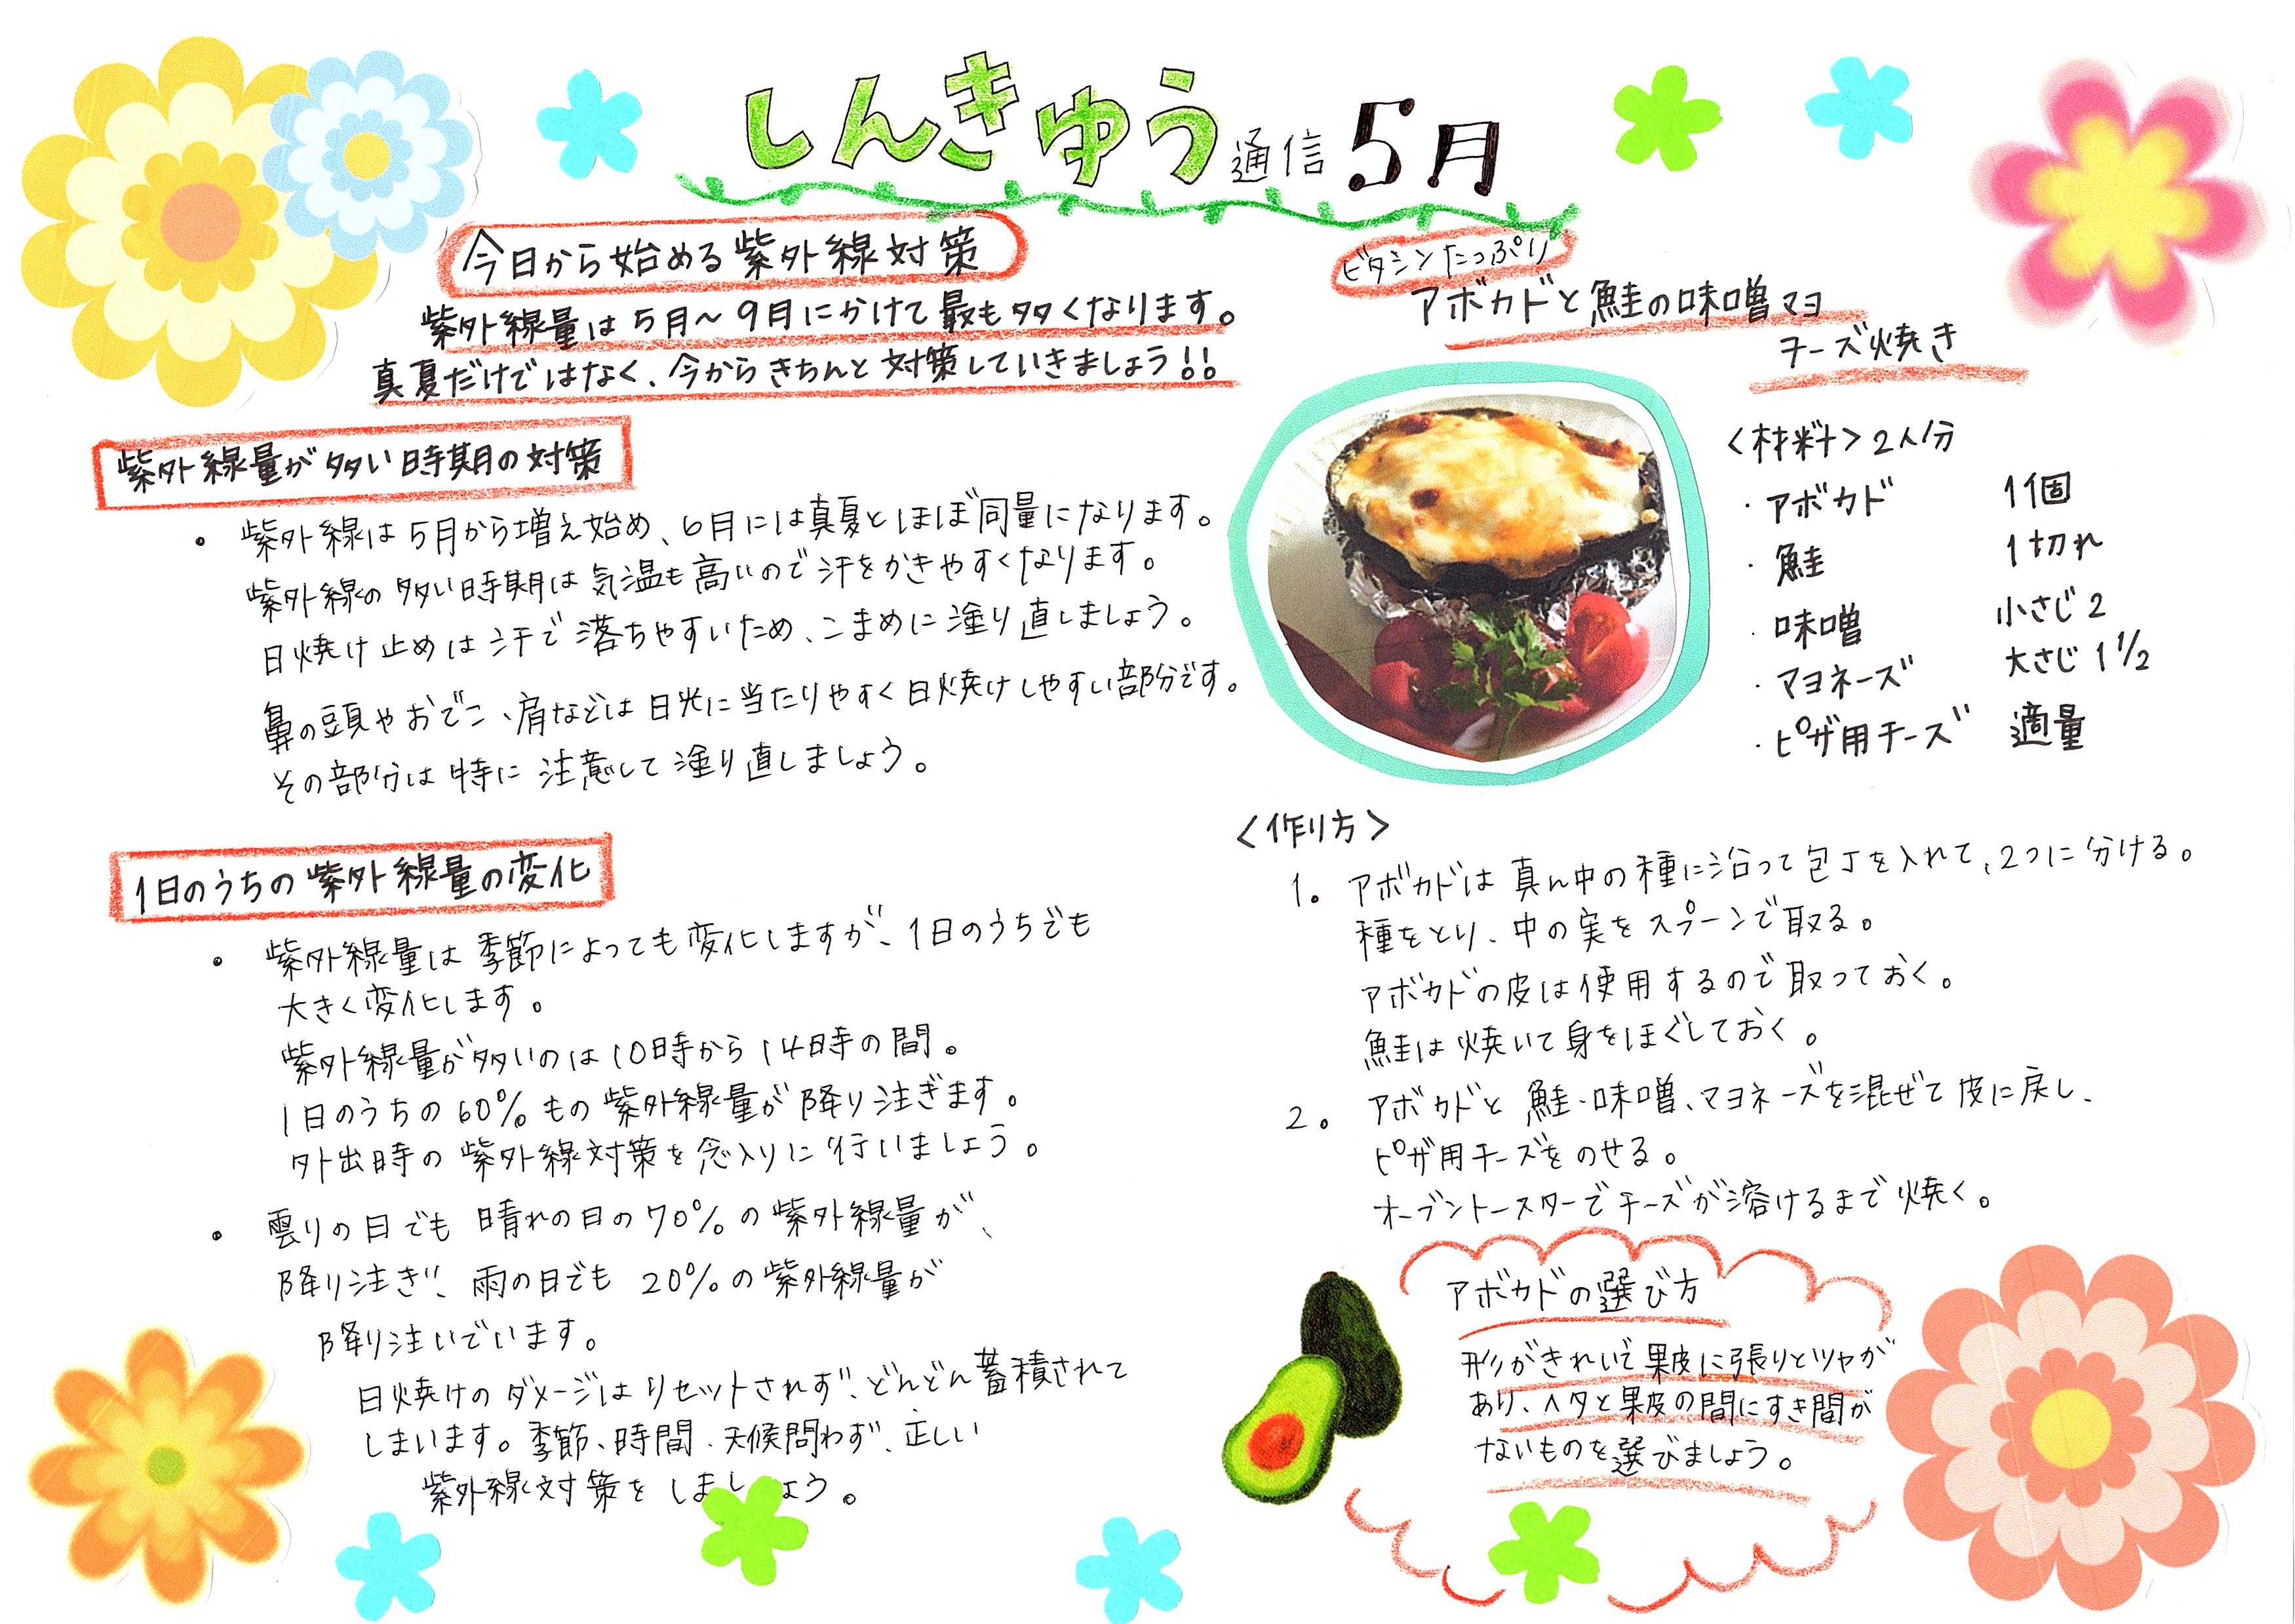 しんきゅう通信 5月
今日から始める紫外線対策
紫外線量は5月～9月にかけて最も多くなります。
真夏だけではなく、今からきちんと対策していきましょう!!
紫外線量が多い時期の対策
・ 紫外線は5月から増え始め、6月には真夏とほぼ同量になります。
紫外線の多い時期は気温も高いので汗をかきやすくなります。
日焼け止めは汗で落ちやすいため、こまめに塗り直しましょう。
鼻の頭やおでこ、肩などは日光に当たりやすく日焼けしやすい部分です。
その部分は特に注意して塗り直しましょう。
1日のうちの紫外線量の変化
・ 紫外線量は季節によっても変化しますが、1日のうちでも
大きく変化します。
紫外線量が多いのは10時から14時の間。
1日のうちの60%もの紫外線量が降り注ぎます。
外出時の紫外線対策を念入りに行いましょう。
・ 曇りの日でも晴れの日の70%の紫外線量が、
降り注ぎ、雨の日でも20%の紫外線量が
降り注いでいます。
日焼けのダメージはリセットされず、どんどん蓄積されて
しまいます。季節、時間、天候問わず、正しい
紫外線対策をしましょう。
ビタミンたっぷり
アボカドと鮭の味噌マヨ
チーズ焼き
<材料>2人分
・アボカド 1個
・鮭 1切れ
・味噌 小さじ2
・マヨネーズ 大さじ1 1/2
・ピザ用チーズ 適量
<作り方>
1. アボカドは真ん中の種に沿って包丁を入れて、2つに分ける。
種をとり、中の実をスプーンで取る。
アボカドの皮は使用するので取っておく。
鮭は焼いて身をほぐしておく。
2. アボカドと鮭・味噌、マヨネーズを混ぜて皮に戻し、
ピザ用チーズをのせる。
オーブントースターでチーズが溶けるまで焼く。
アボカドの選び方
形がきれいで果皮に張りとツヤが
あり、ヘタと果皮の間にすき間が
ないものを選びましょう。